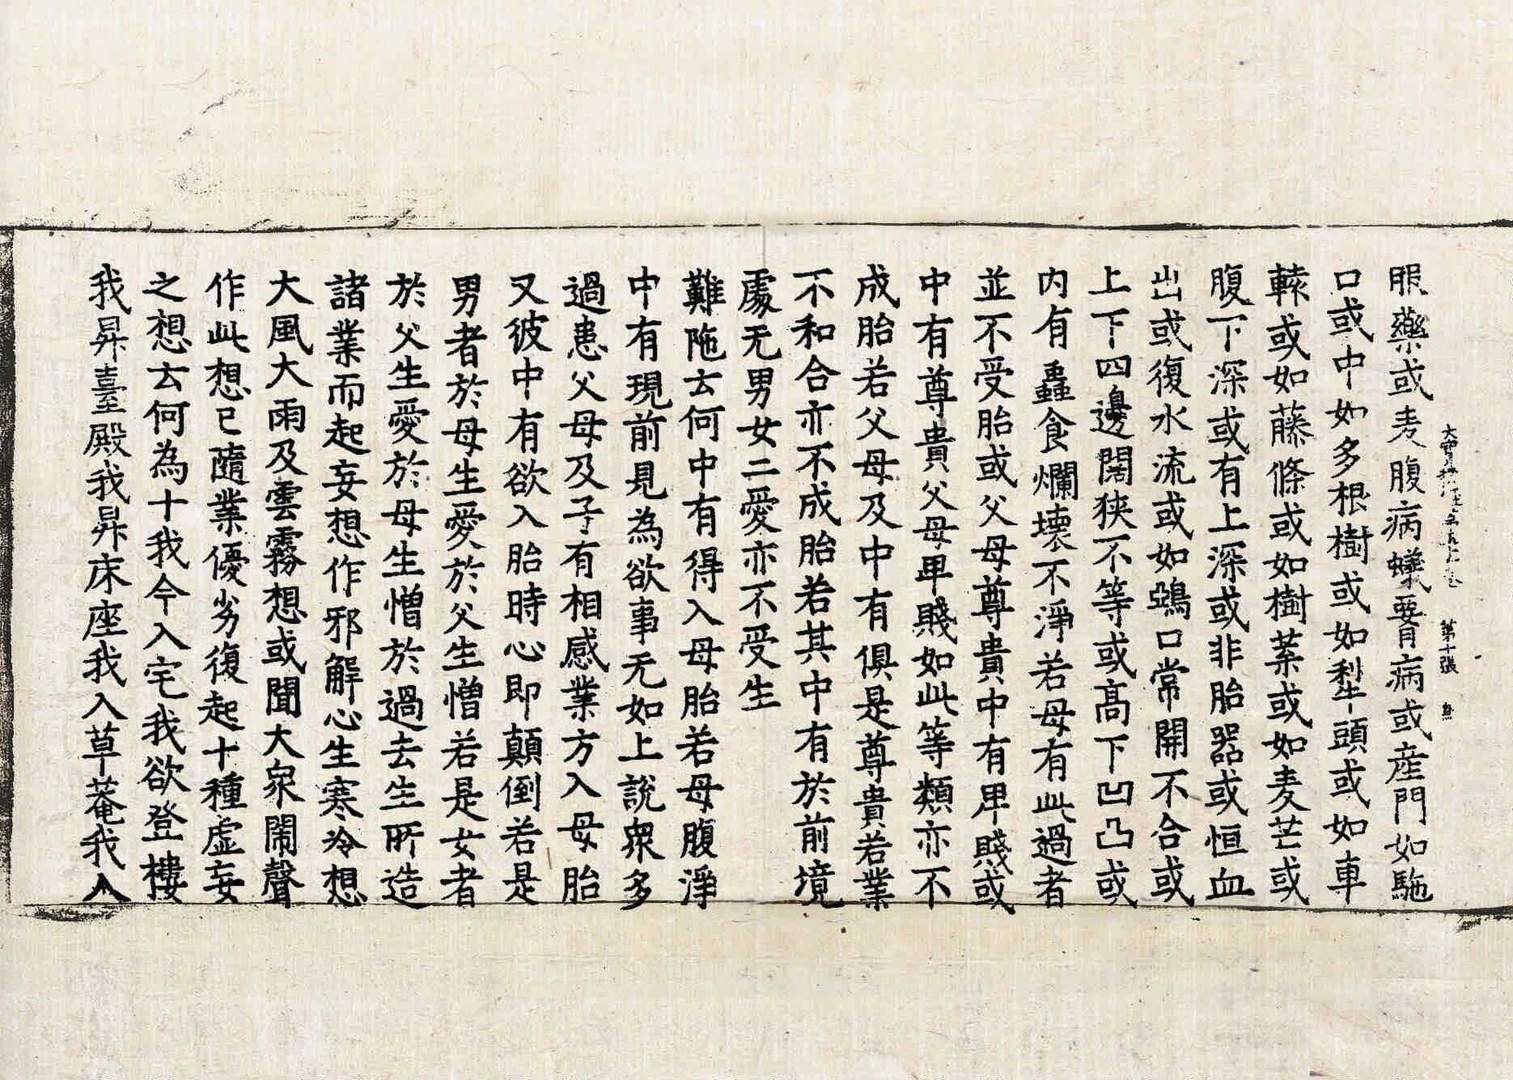 大寶積經五十六卷 第十張
服藥或麦腹病蟻𦝫病或産門如駞
口或中如多根樹或如犁頭或如車
轅或如藤條或如樹葉或如麦芒或
腹下深或有上深或非胎器或恒血
出或復水流或如鵶口常開不合或
上下四邊闊狹不等或髙下凹凸或
内有蟲食爛壞不淨若母有此過者
並不受胎或父母尊貴中有卑賤或
中有尊貴父母卑賤如此等類亦不
成胎若父母及中有俱是尊貴若業
不和合亦不成胎若其中有於前境
處无男女二愛亦不受生
難陁云何中有得入母胎若母腹淨
中有現前見為欲事无如上說衆多
過患父母及子有相感業方入母胎
又彼中有欲入胎時心即顛倒若是
男者於母生愛於父生憎若是女者
於父生愛於母生憎於過去生所造
諸業而起妄想作邪解心生寒冷想
大風大雨及雲霧想或聞大衆鬧聲
作此想已隨業優劣復起十種虛妄
之想云何為十我今入宅我欲登樓
我昇臺殿我昇床座我入草菴我入